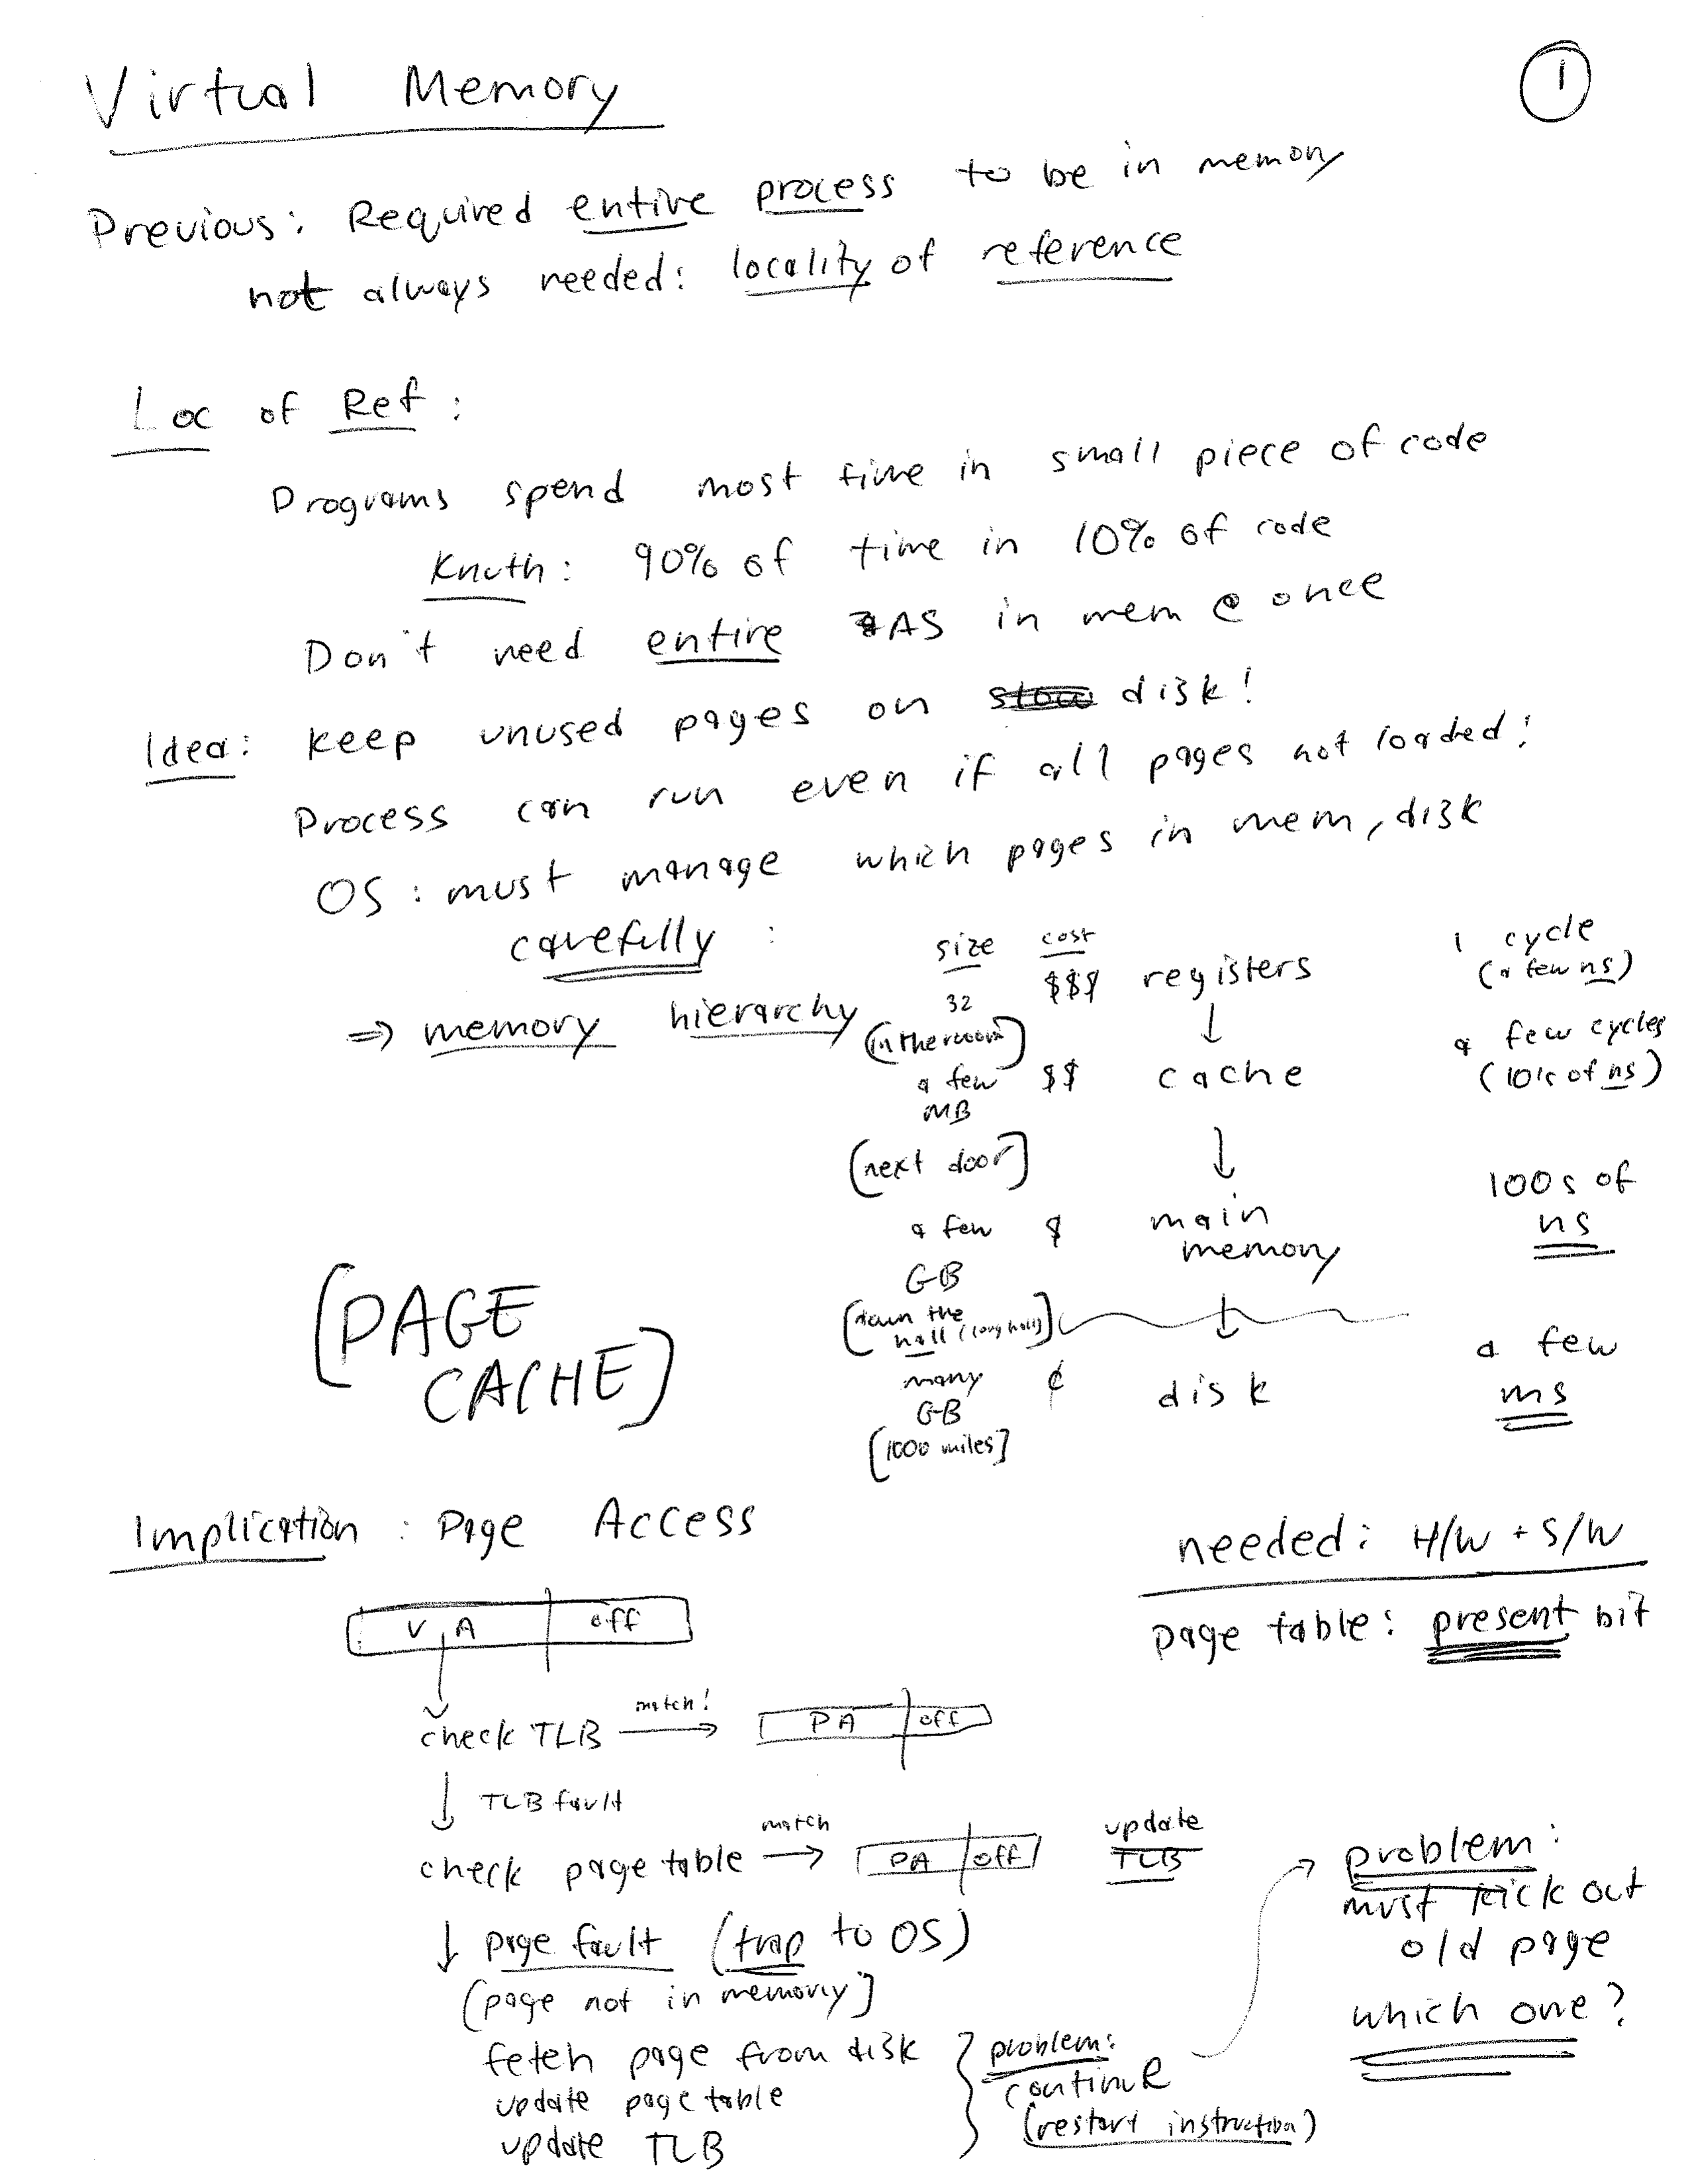 Virtual Memory
1
Previous: Required entire process to be in memory
not always needed: locality of reference
Loc of Ref:
Programs spend most time in small piece of code
Knuth: 90% of time in 10% of code
Don't need entire AS in mem @ once
Idea: keep unused pages on disk!
Process can run even if all pages not loaded!
OS: must manage which pages in mem, disk
carefully:
⇒ memory hierarchy
size cost
32 $$$ registers 1 cycle
(a few ns)
[in the room]
↓
a few MB $$ cache a few cycles
(10's of ns)
[next door]
↓
a few GB $ main memory 100s of ns
[down the hall (long hall)]
↓
many GB ¢ disk a few ms
[1000 miles]
[PAGE
CACHE]
Implication: Page Access
needed: H/W + S/W
page table: present bit
VA off
↓
check TLB match! → PA off
↓ TLB fault
check page table match → PA off update TLB
↓ page fault (trap to OS)
[page not in memory]
fetch page from disk
update page table
update TLB
problem:
continue
(restart instruction)
→ problem:
must kick out
old page
which one?